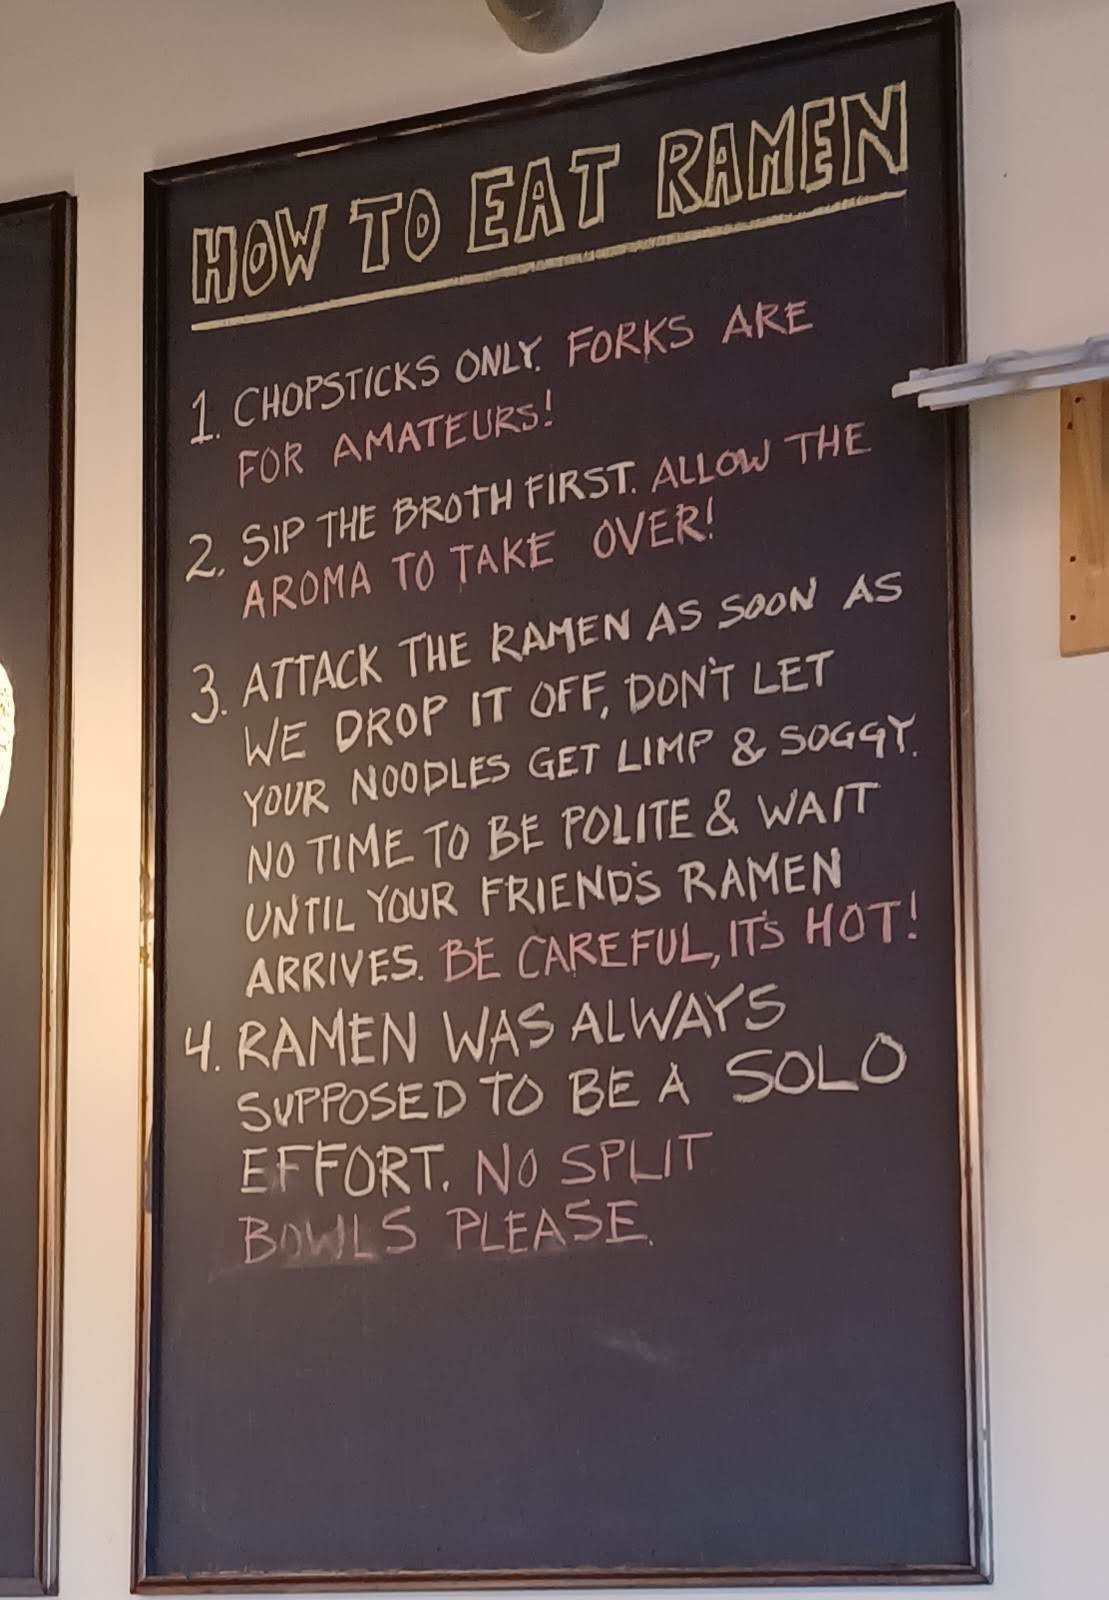 HOW TO EAT RAMEN
1. CHOPSTICKS ONLY. FORKS ARE
FOR AMATEURS!
2. SIP THE BROTH FIRST. ALLOW THE
AROMA TO TAKE OVER!
3. ATTACK THE RAMEN AS SOON AS
WE DROP IT OFF, DON'T LET
YOUR NOODLES GET LIMP & SOGGY.
NO TIME TO BE POLITE & WAIT
UNTIL YOUR FRIEND'S RAMEN
ARRIVES. BE CAREFUL, IT'S HOT!
4. RAMEN WAS ALWAYS
SUPPOSED TO BE A SOLO
EFFORT. NO SPLIT
BOWLS PLEASE.